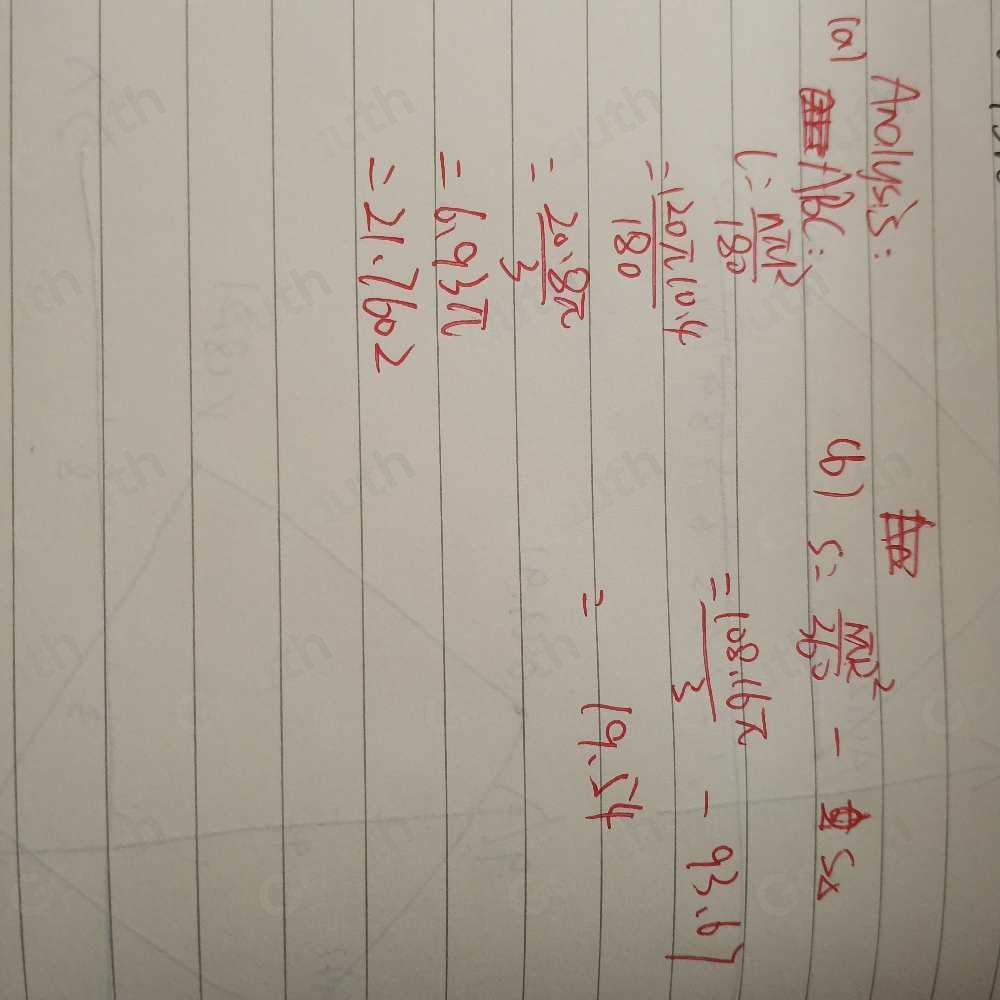 Analysis:
(a) ABC:
l = nπR/180
= 120π10.4/180
= 20.8π/3
= 6.93π
= 21.7602
(b) S = nπR²/360 - S△
= 108.16π/3 - 93.67
= 19.54